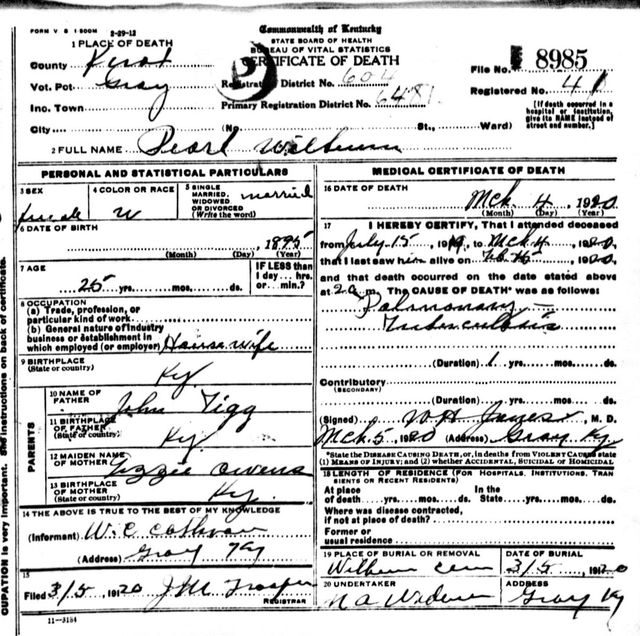 FORM V S 1 500M 2-29-12
Commonwealth of Kentucky
STATE BOARD OF HEALTH
BUREAU OF VITAL STATISTICS
CERTIFICATE OF DEATH
1 PLACE OF DEATH
County Knox
Vot. Pct Gray
Inc. Town
City (No. St., Ward)
Registration District No. 604
Primary Registration District No. 6481
File No. 8985
Registered No. 41
[If death occurred in a hospital or institution, give its NAME instead of street and number.]
2 FULL NAME Pearl Wilburn
PERSONAL AND STATISTICAL PARTICULARS
3 SEX female
4 COLOR OR RACE W
5 SINGLE MARRIED, WIDOWED OR DIVORCED (Write the word) married
6 DATE OF BIRTH 1895
(Month) (Day) (Year)
7 AGE 25 yrs. mos. ds.
IF LESS than 1 day... hrs. or min.?
8 OCCUPATION
(a) Trade, profession, or particular kind of work
(b) General nature of industry business or establishment in which employed (or employer) House wife
9 BIRTHPLACE (State or country) Ky
PARENTS
10 NAME OF FATHER John
11 BIRTHPLACE OF FATHER (State or country) Ky.
12 MAIDEN NAME OF MOTHER Lizzie Owens
13 BIRTHPLACE OF MOTHER (State or country) Ky.
14 THE ABOVE IS TRUE TO THE BEST OF MY KNOWLEDGE
(Informant) W.C
(Address) Gray Ky
15
Filed 3/5 1920 J M
REGISTRAR
11-3184
MEDICAL CERTIFICATE OF DEATH
16 DATE OF DEATH Mch 4 1920
(Month) (Day) (Year)
17 I HEREBY CERTIFY, That I attended deceased
from July 15, 1919, to Mch 4 1920,
that I last saw him alive on 1920
and that death occurred on the date stated above
at 2 m. The CAUSE OF DEATH* was as follows:
Pulmonary
Tuberculosis
(Duration) 1 yrs. mos. ds.
Contributory (SECONDARY)
(Duration) yrs. mos. ds.
(Signed) W H , M. D.
Mch 5, 1920 (Address) Gray Ky
*State the DISEASE CAUSING DEATH, or, in deaths from VIOLENT CAUSES state (1) MEANS OF INJURY; and (2) whether ACCIDENTAL, SUICIDAL OR HOMICIDAL
18 LENGTH OF RESIDENCE (FOR HOSPITALS, INSTITUTIONS, TRANSIENTS OR RECENT RESIDENTS)
At place of death yrs. mos. ds. In the State yrs. mos. ds.
Where was disease contracted, if not at place of death?
Former or usual residence
19 PLACE OF BURIAL OR REMOVAL Wilburn Cem
DATE OF BURIAL 3/5, 1920
20 UNDERTAKER N A
ADDRESS Gray Ky
CUPATION is very important. See instructions on back of certificate.